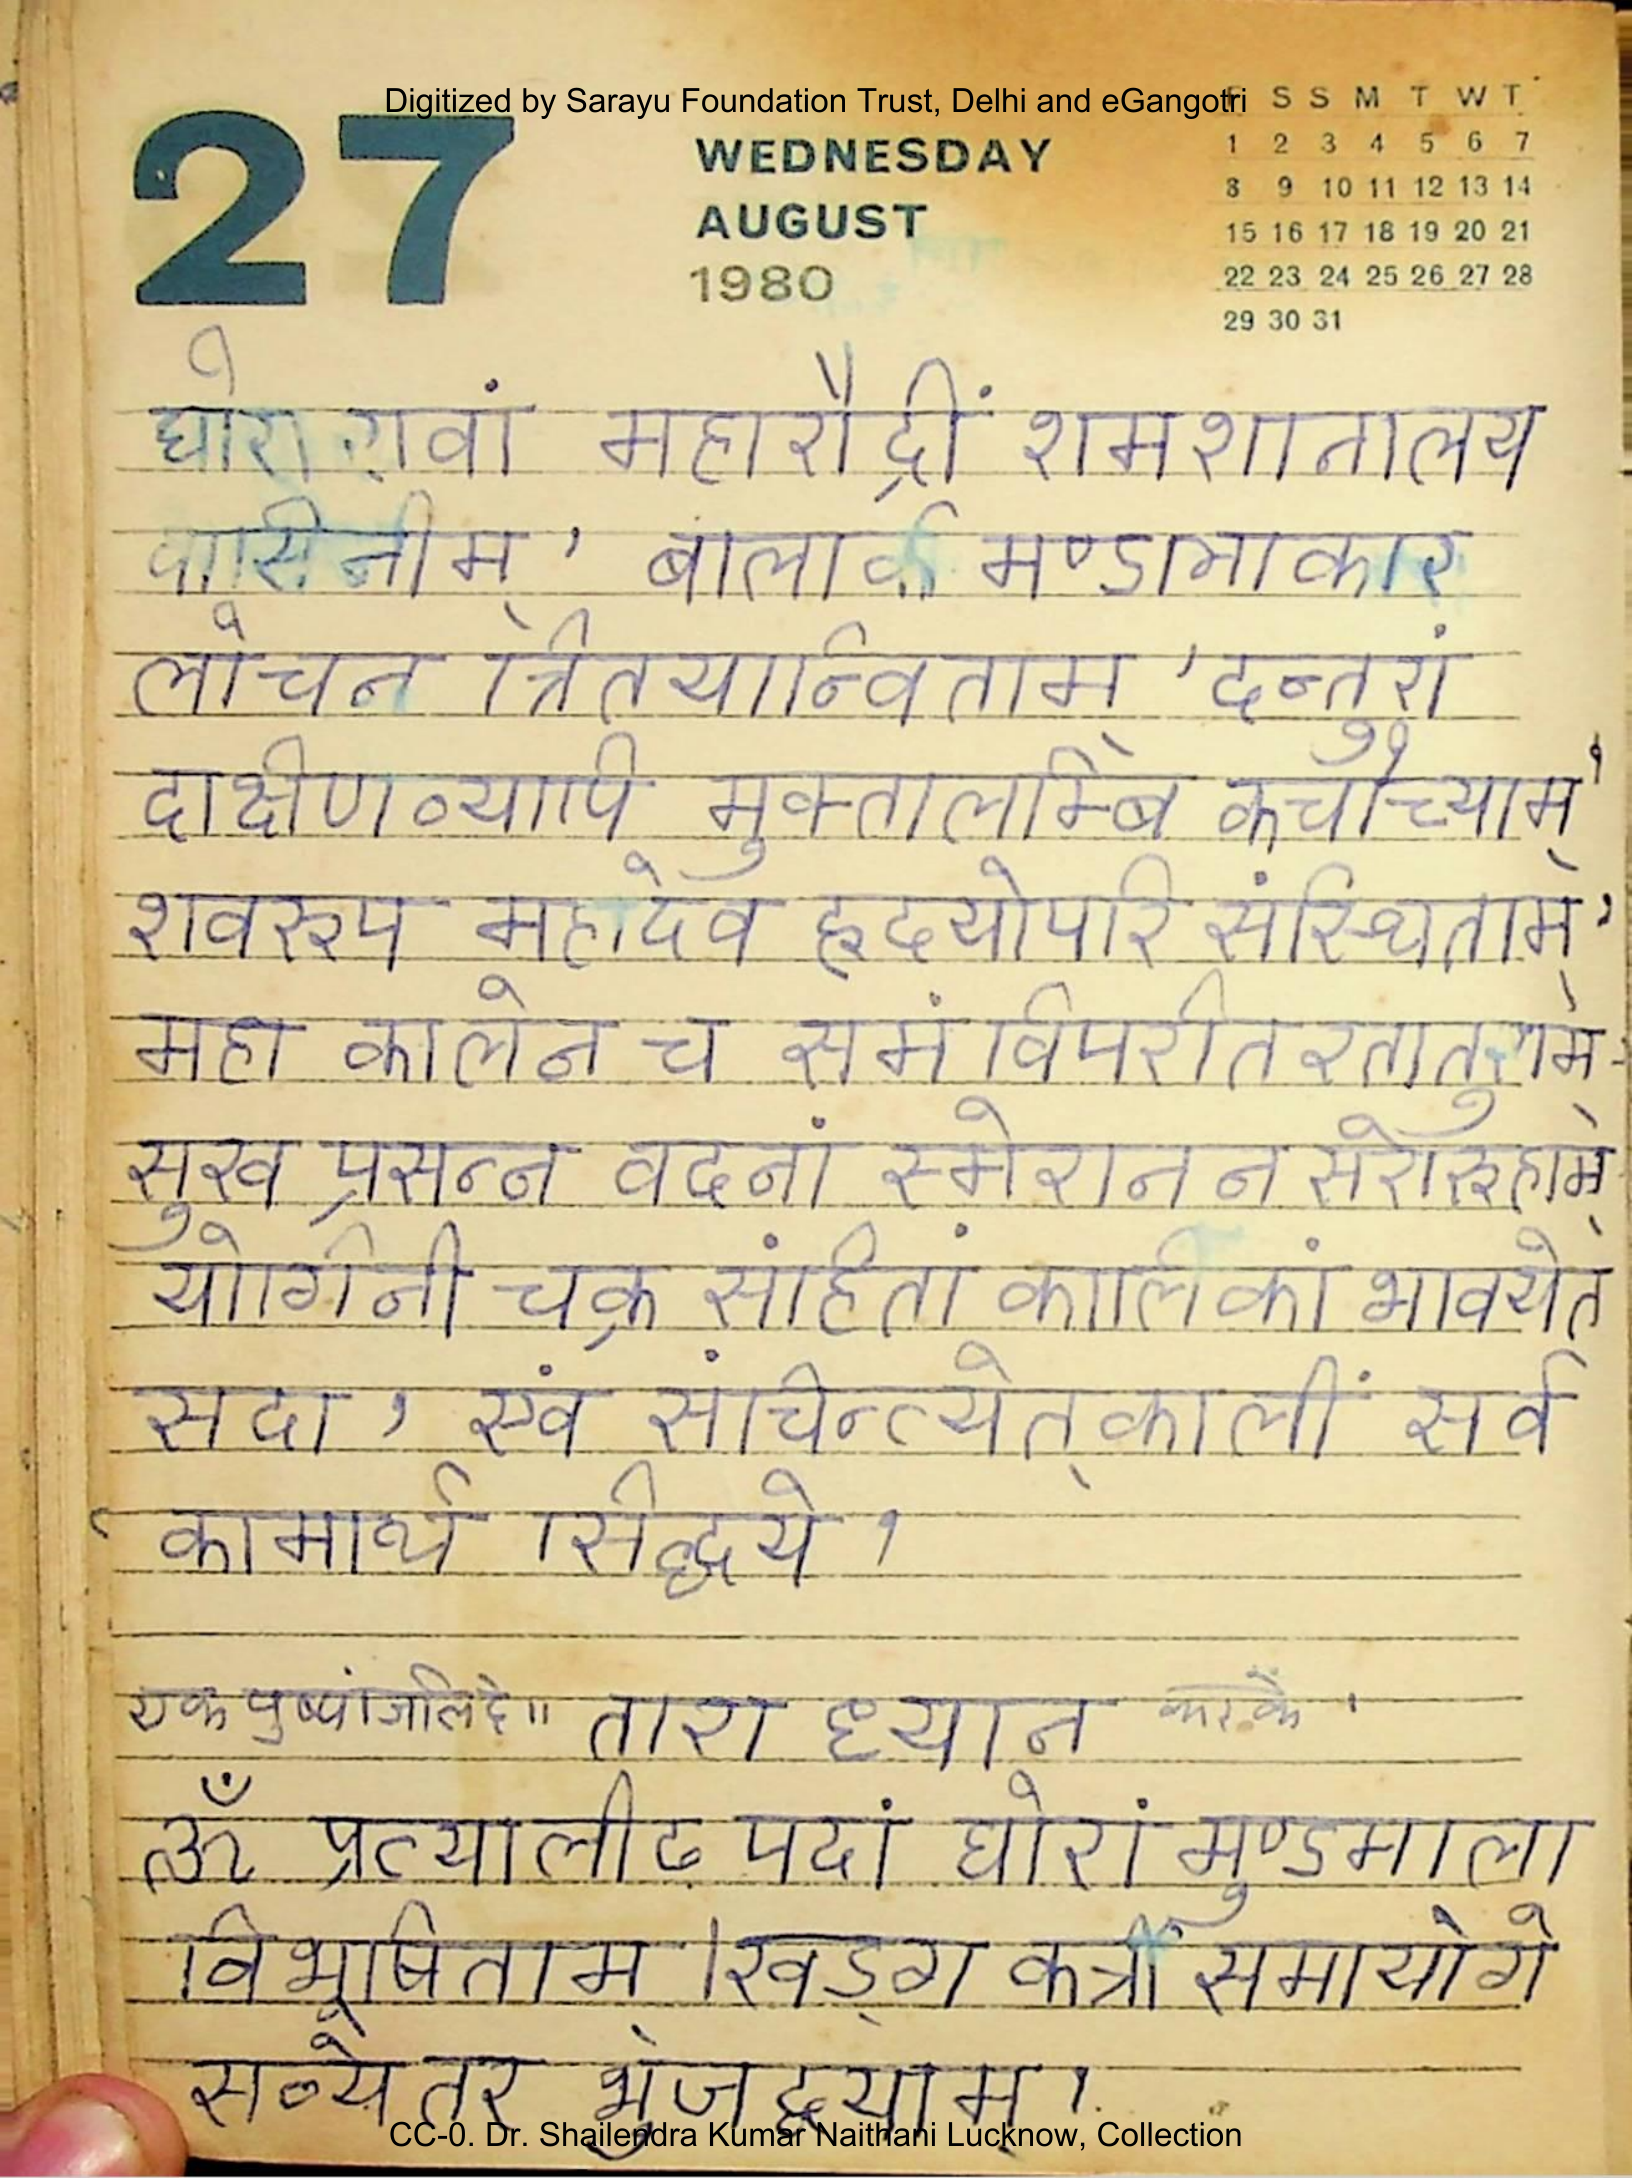 Digitized by Sarayu Foundation Trust, Delhi and eGangotri
27
WEDNESDAY
AUGUST
1980
F S S M T W T
1 2 3 4 5 6 7
8 9 10 11 12 13 14
15 16 17 18 19 20 21
22 23 24 25 26 27 28
29 30 31
घोरा रावां महारौद्रीं शमशानालय
वासिनीम् ' बालार्क मण्डामाकार
लोचन त्रितयान्विताम् ' दन्तुरां
दाक्षीणव्यापि मुक्तालम्बि कचोच्याम् '
शवरूप महादेव हृदयोपरि संस्थिताम् '
महा कालेन च समं विपरीत रतातुराम्
सुख प्रसन्न वदनां स्मेरानन सरोरूहाम्
योगिनी चक्र संहितां कालिकां भावयेत्
सदा , एवं संचिन्त्येत् कालीं सर्व
कामार्थ सिद्धये ।
एक पुष्पांजलि दे ॥ तारा ध्यान करके '
ॐ प्रत्यालीढ़ पदां घोरां मुण्डमाला
विभूषिताम् । खड्ग कर्त्री समायोगे
सव्येतर भुजद्वयाम् ।
CC-0. Dr. Shailendra Kumar Naithani Lucknow, Collection